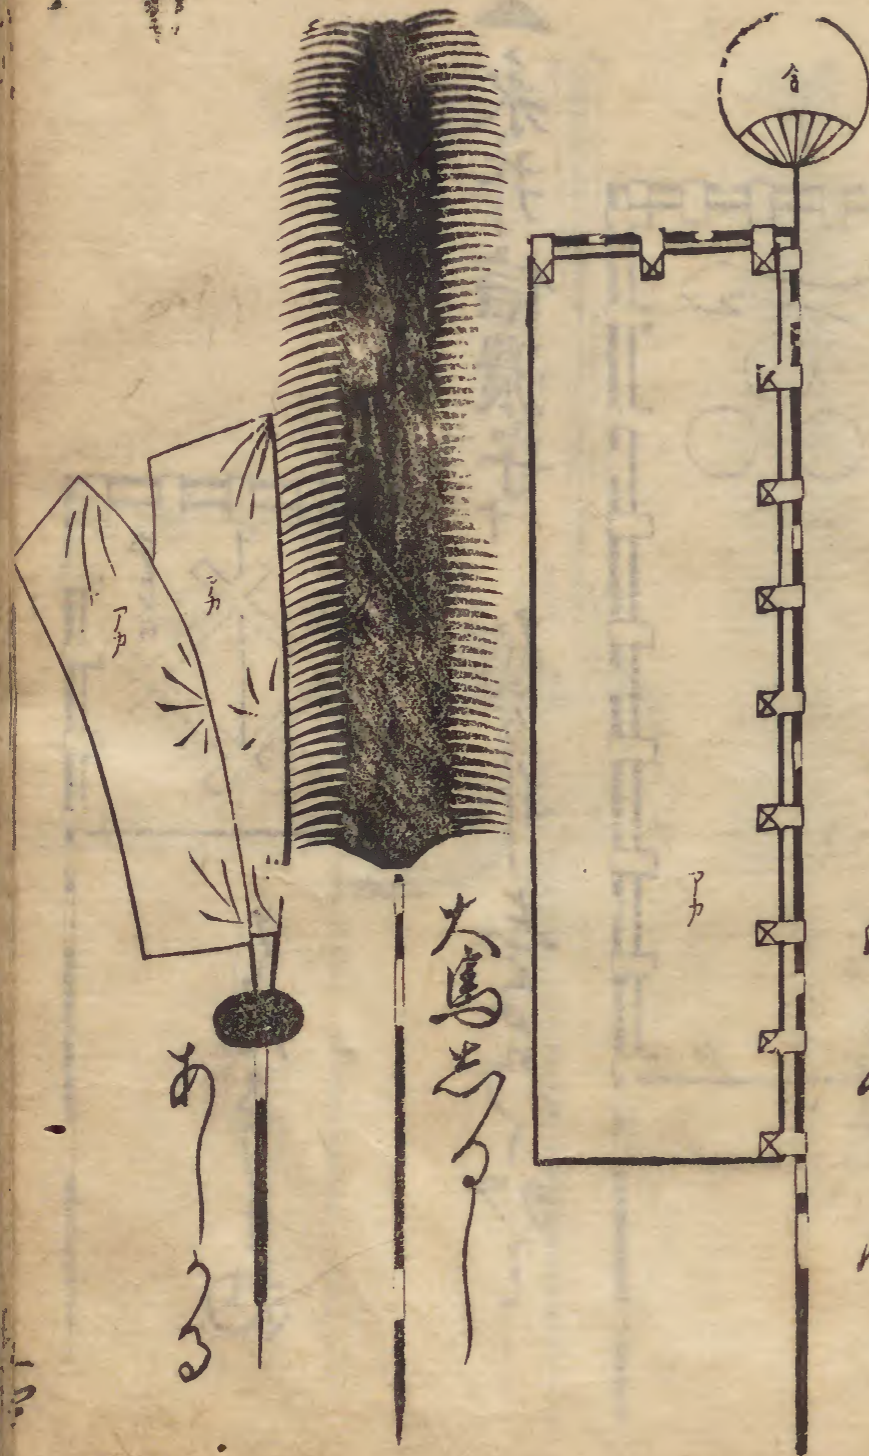 金
アカ
大馬志るし
アカ
アカ
あしかる